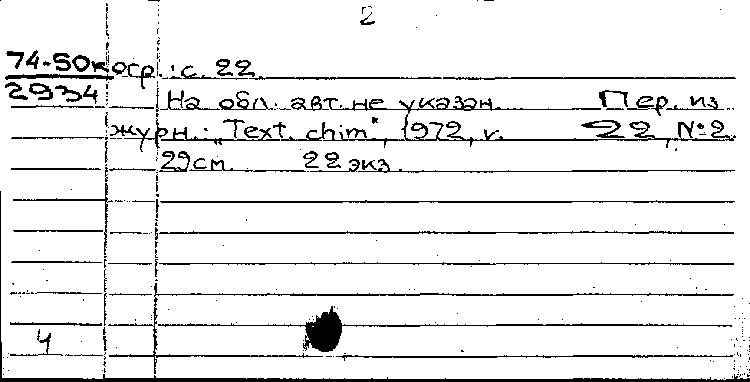 2
74-50к огр.: с. 22.
2934 На обл. авт. не указан. Пер. из
журн.: „Text. chim", 1972, v. 22, №2.
29см. 22 экз.
4